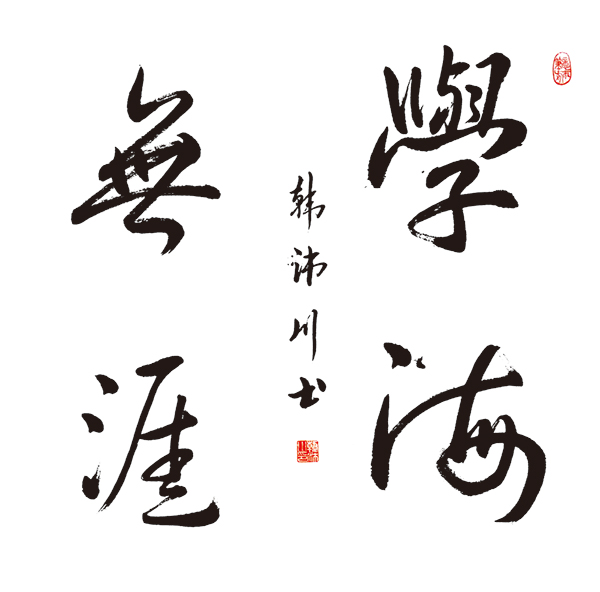 學海
無涯
韩沛川书